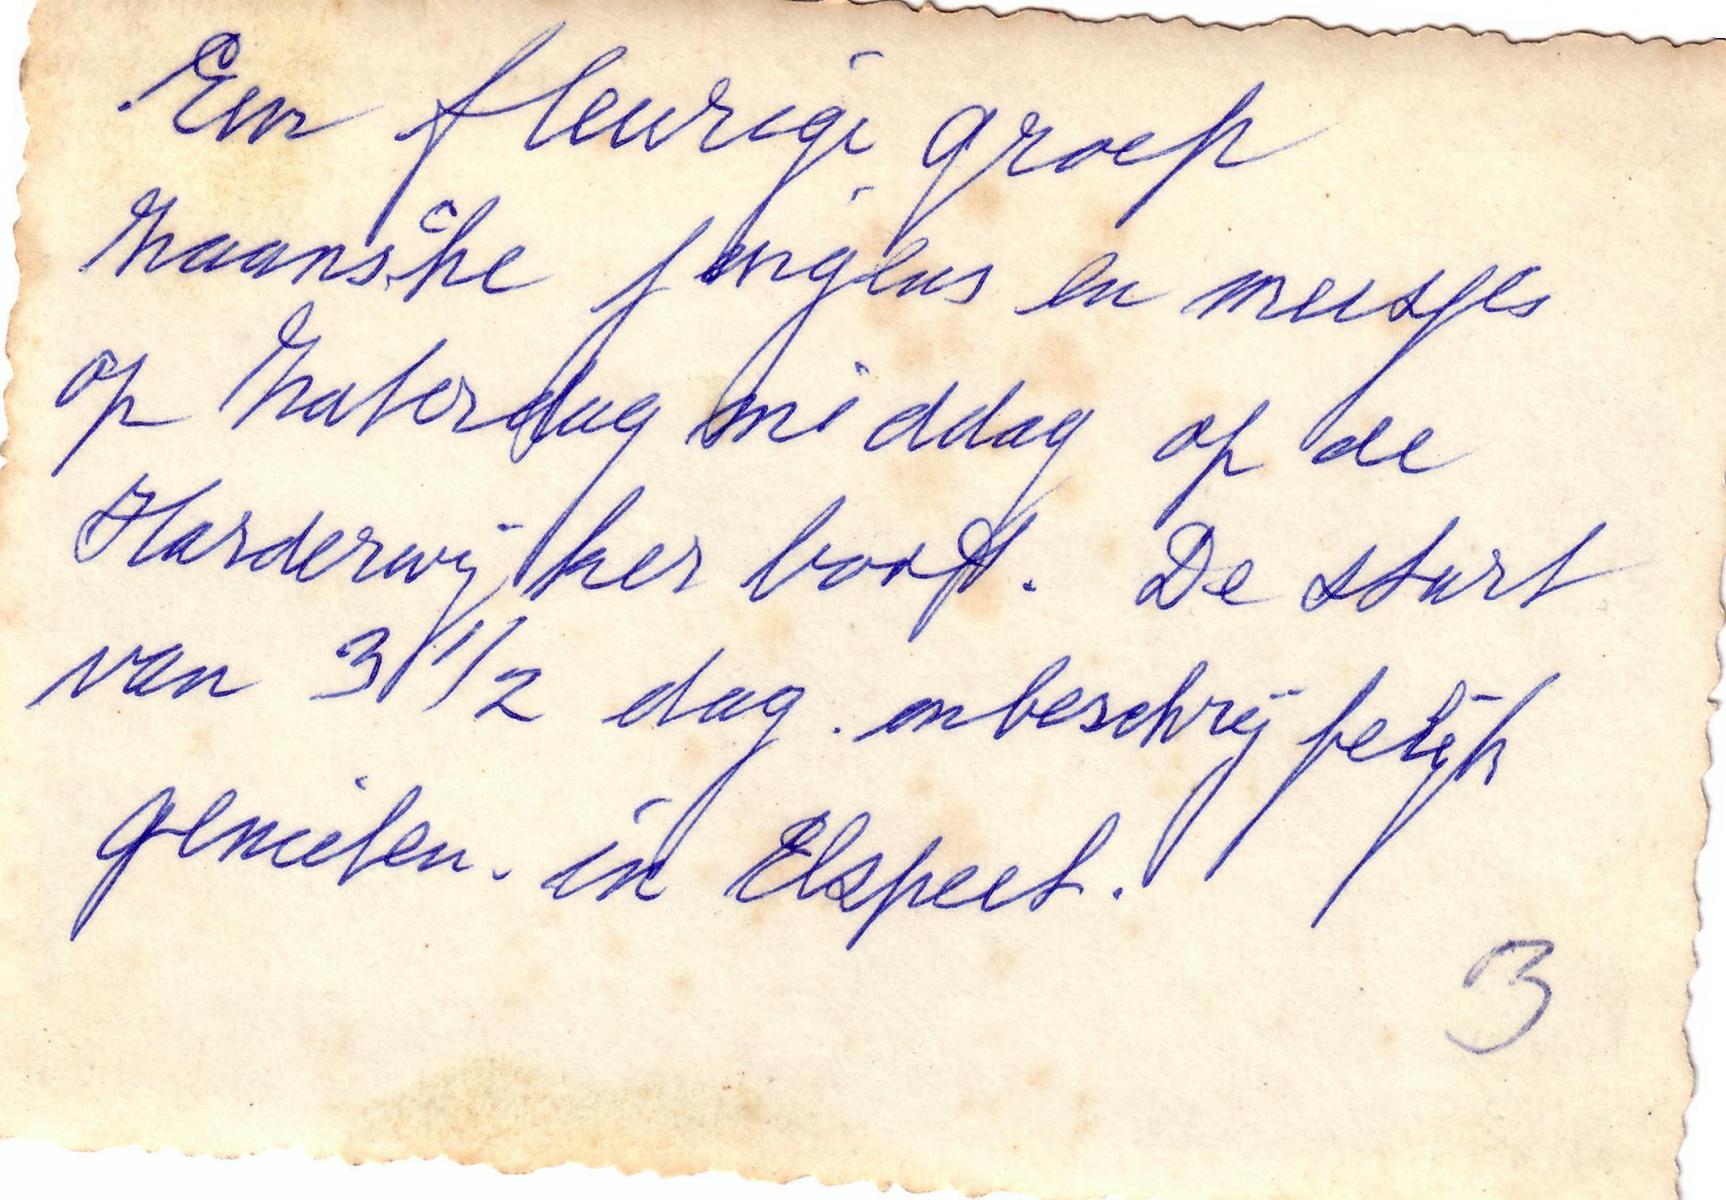 Een fleurige groep
Zaansche jongens en meisjes
op Zaterdag middag op de
Harderwijker boot. De start
van 3 1/2 dag. onbeschrijfelijk
genieten. in Elspeet.
3